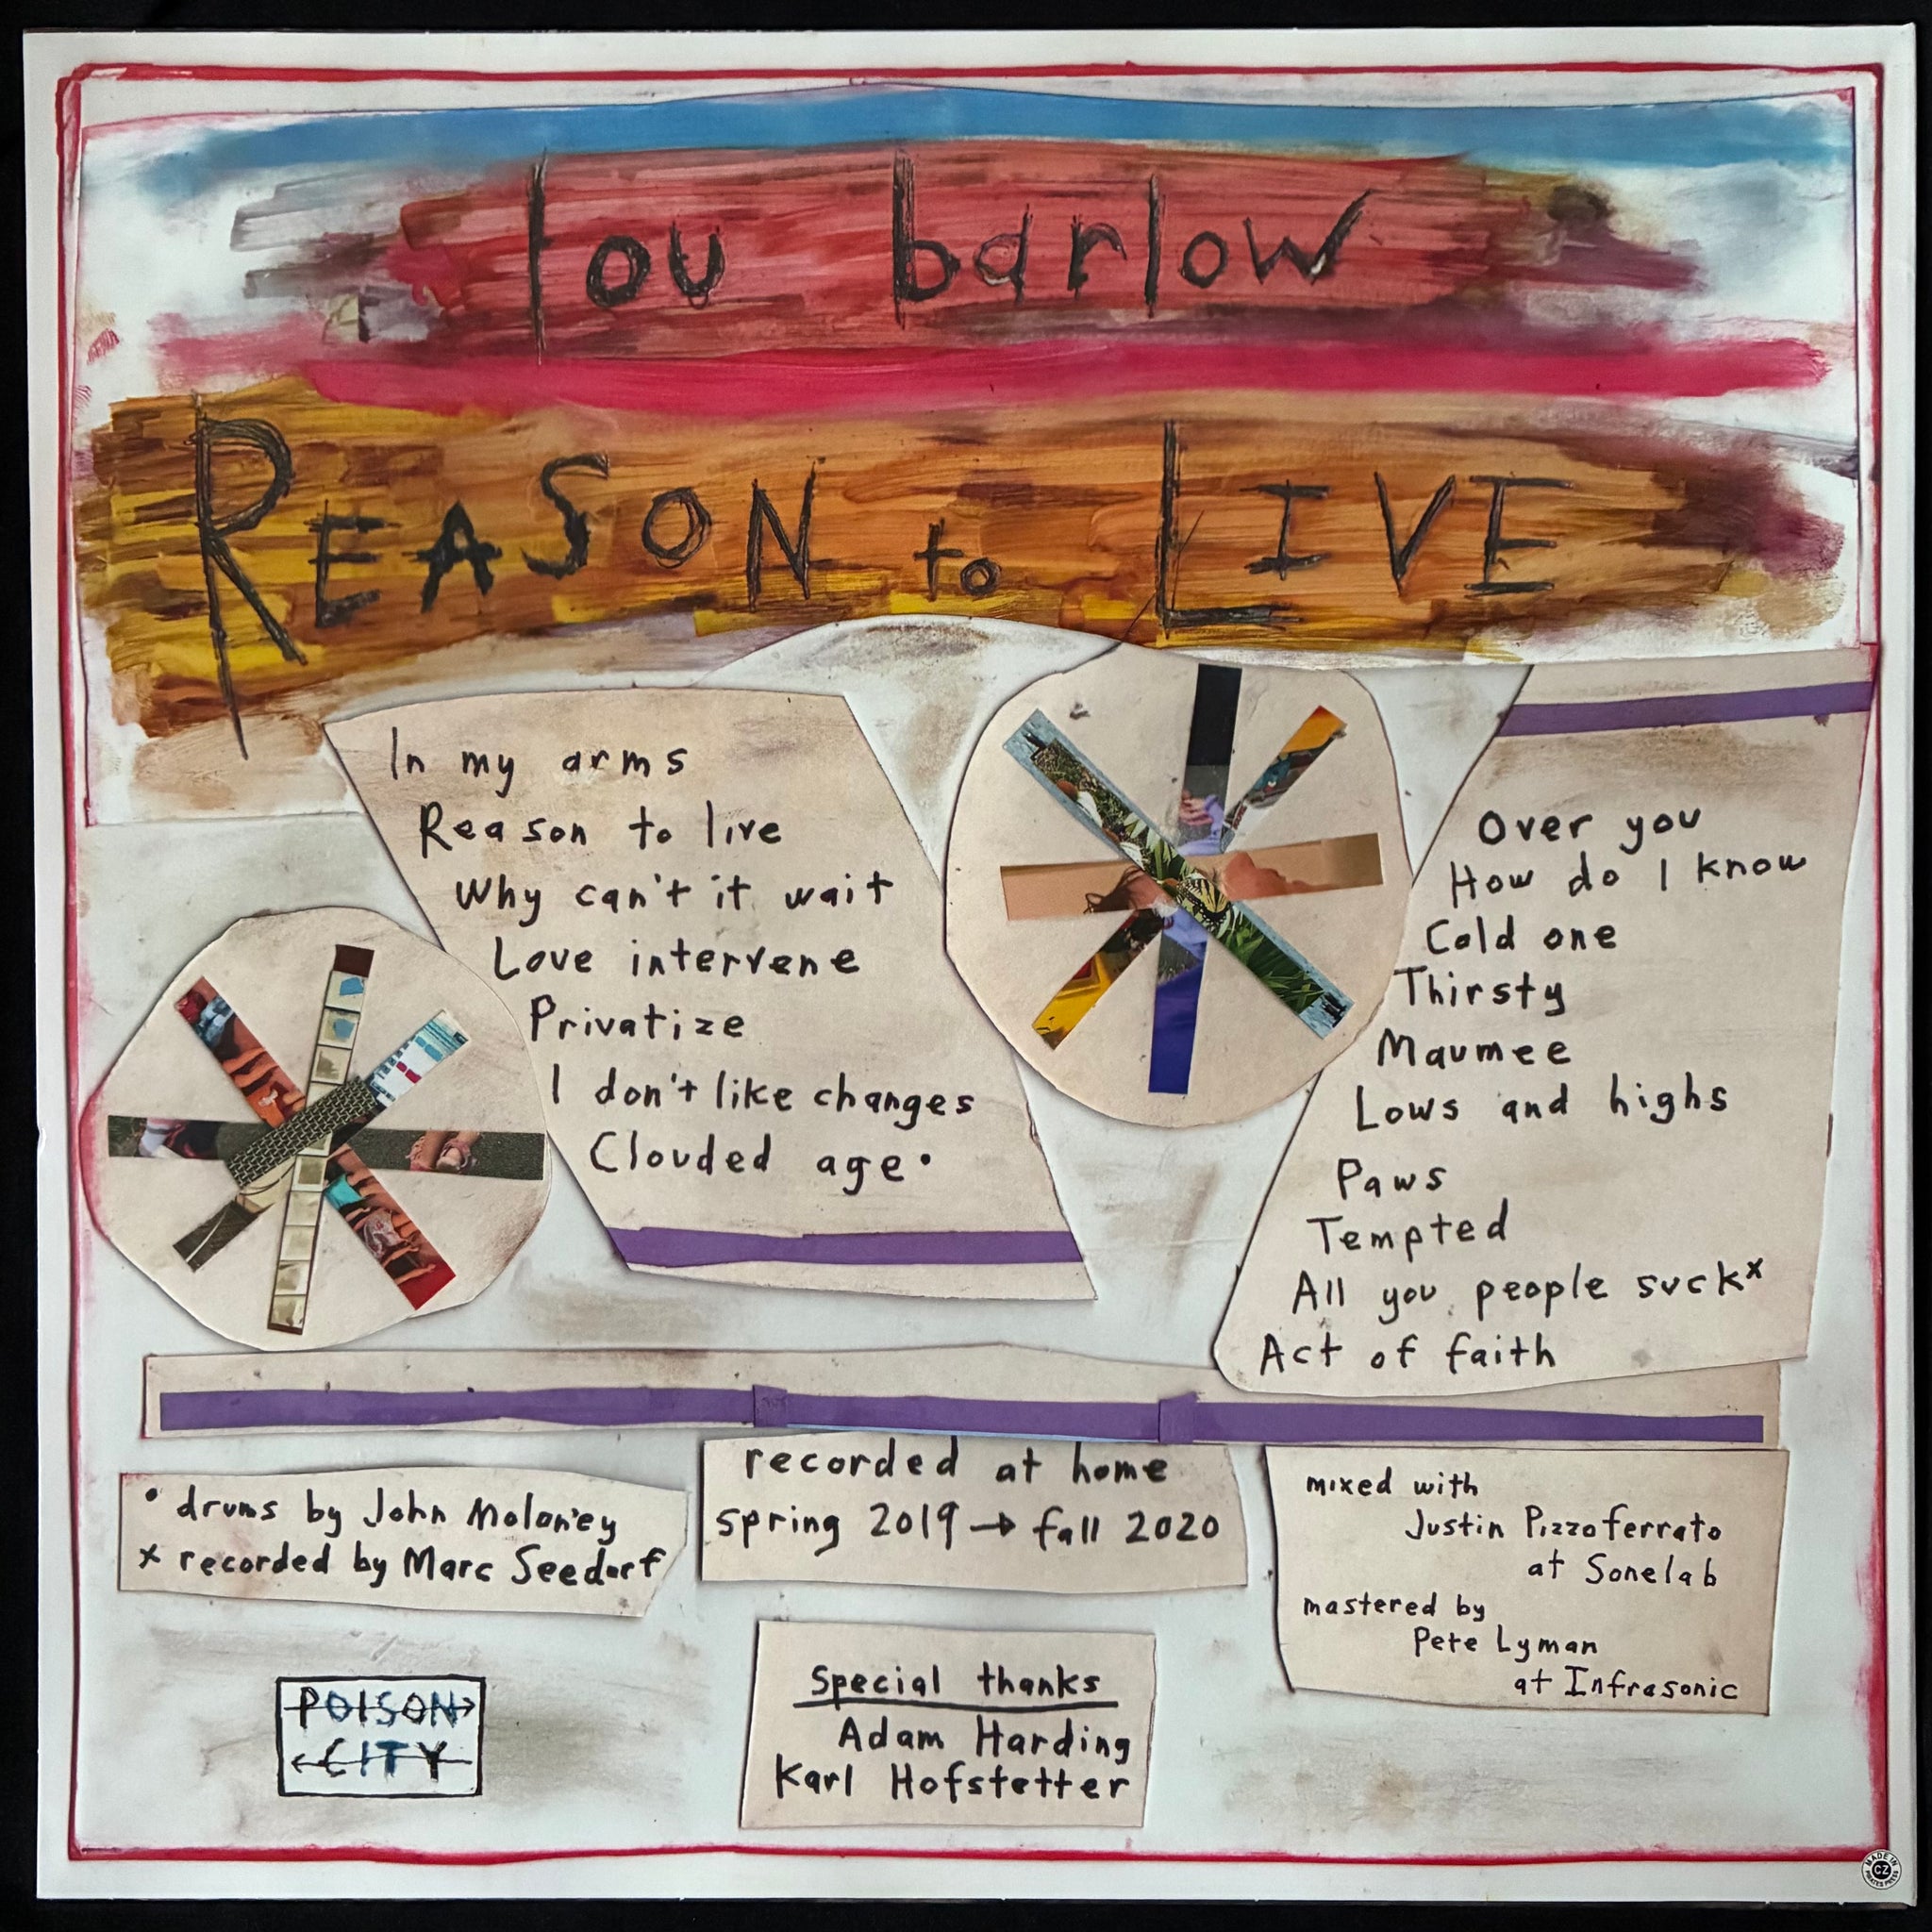 lou barlow
REASON to LIVE
In my arms
Reason to live
Why can't it wait
Love intervene
Privatize
I don't like changes
Clouded age •
Over you
How do I know
Cold one
Thirsty
Maumee
Lows and highs
Paws
Tempted
All you people suck x
Act of faith
• drums by John Moloney
x recorded by Marc Seedorf
recorded at home
spring 2019 → fall 2020
mixed with
Justin Pizzoferrato
at Sonelab
mastered by
Pete Lyman
at Infrasonic
Special thanks
Adam Harding
Karl Hofstetter
POISON
CITY
MADE IN
CZ
PIRATES PRESS